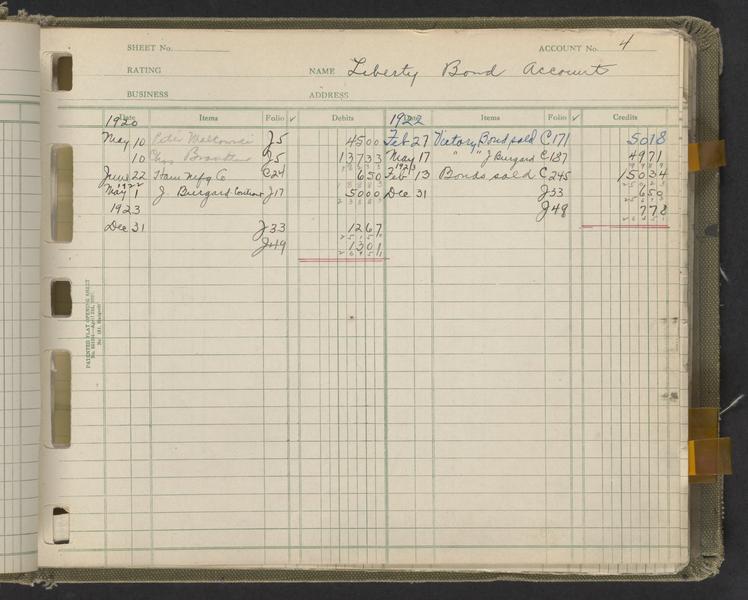 SHEET No. ACCOUNT No. 4
RATING NAME Liberty Bond Account
BUSINESS ADDRESS
Date Items Folio ✓ Debits Date Items Folio ✓ Credits
1920 1922
May 10 Peter J5 4500 Feb 27 Victory Bond sold C171 5018
10 Chas J5 13733 May 17 " " J Burgard C187 4971
9989
1923
June 22 Ham Mfg Co C24 650 Feb 13 Bonds sold C245 15034
18883 25023
1922
May 1 J Burgard Contract J17 5000 Dec 31 J33 650
23883 25673
1923 J48 778
26451
Dec 31 J33 1267
25150
J49 1301
26451
PATENTED FLAT OPENING SHEET